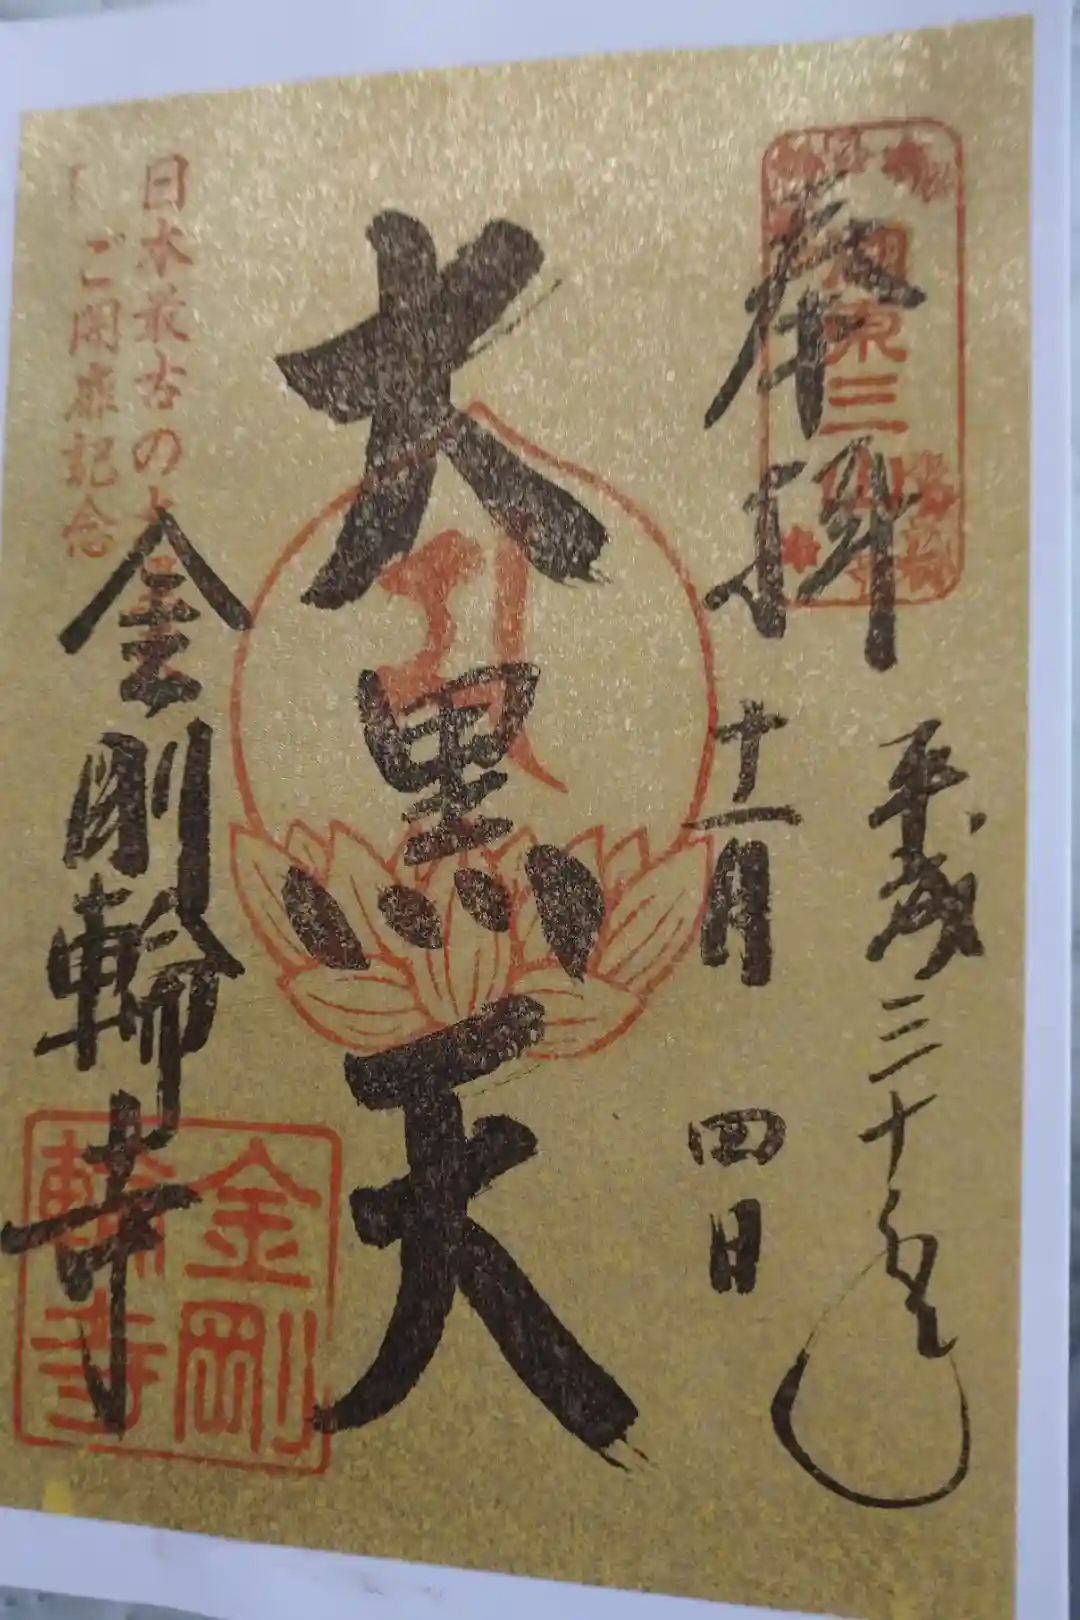 奉拝
湖東三山
平成三十年
十一月 四日
大黒天
日本最古の大
ご開扉記念
金剛輪寺
金剛輪寺